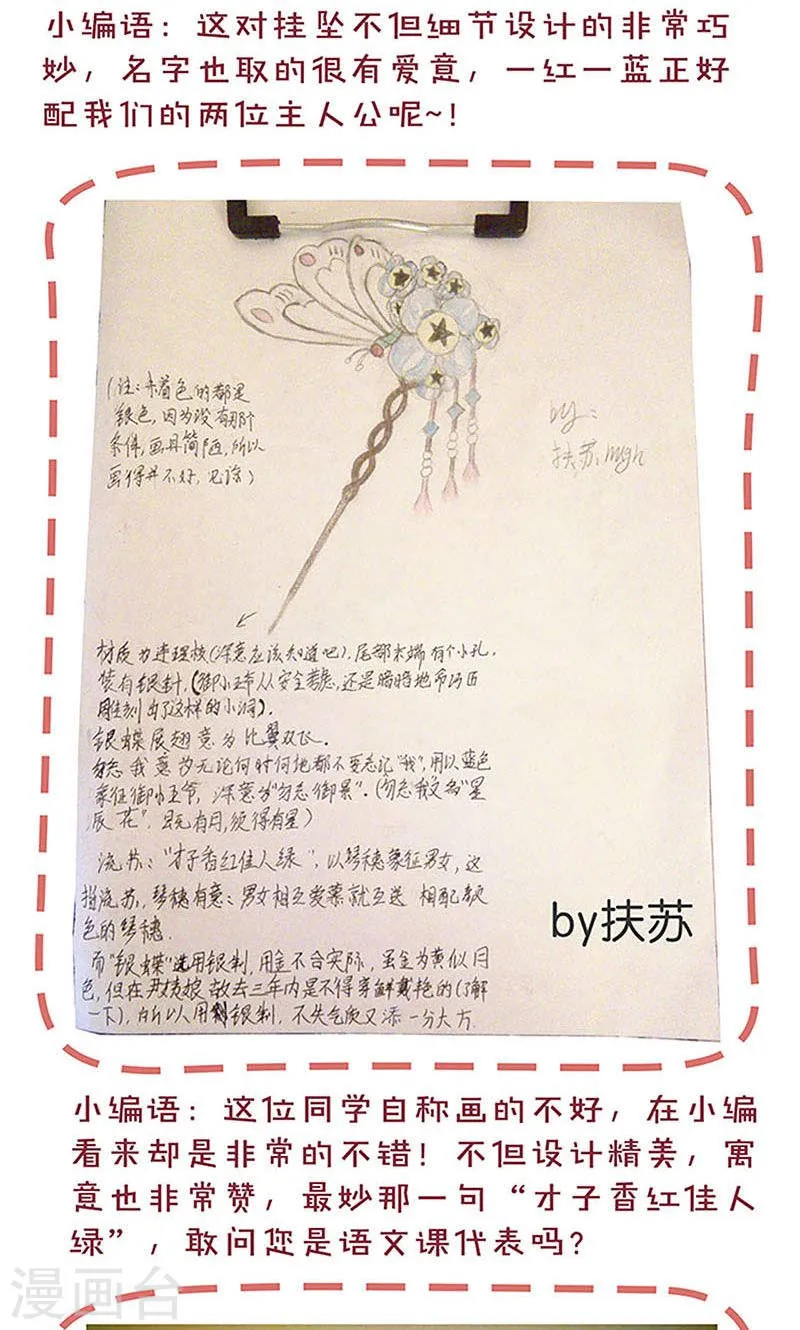 小编语：这对挂坠不但细节设计的非常巧
妙，名字也取的很有爱意，一红一蓝正好
配我们的两位主人公呢~！
（注：未着色的都是
银色，因为没有那个
条件，画具简陋，所以
画得并不好，见谅）
by：
扶苏
材质为连理枝（深意应该知道吧），尾部末端有个小孔，
装有银针，（御小王爷从安全着想，还是暗暗地命巧匠
雕刻出了这样的小洞）．
银蝶展翅意为比翼双飞．
勿忘我意为无论何时何地都不要忘记“我”，用以蓝色
象征御小王爷，深意为“勿忘御景”．（勿忘我又名“星
辰花”，既有月，须得有星）
流苏：“才子香红佳人绿”，以琴穗象征男女，这
指流苏，琴穗有意：男女相互爱慕就互送 相配颜
色的琴穗．
而“银蝶”选用银制，用金不合实际，虽金为黄似月
色，但在 故去三年内是不得穿鲜戴艳的（了解
一下），所以用银制，不失气质又添一分大方
by扶苏
小编语：这位同学自称画的不好，在小编
看来却是非常的不错！不但设计精美，寓
意也非常赞，最妙那一句“才子香红佳人
绿”，敢问您是语文课代表吗？
漫画台